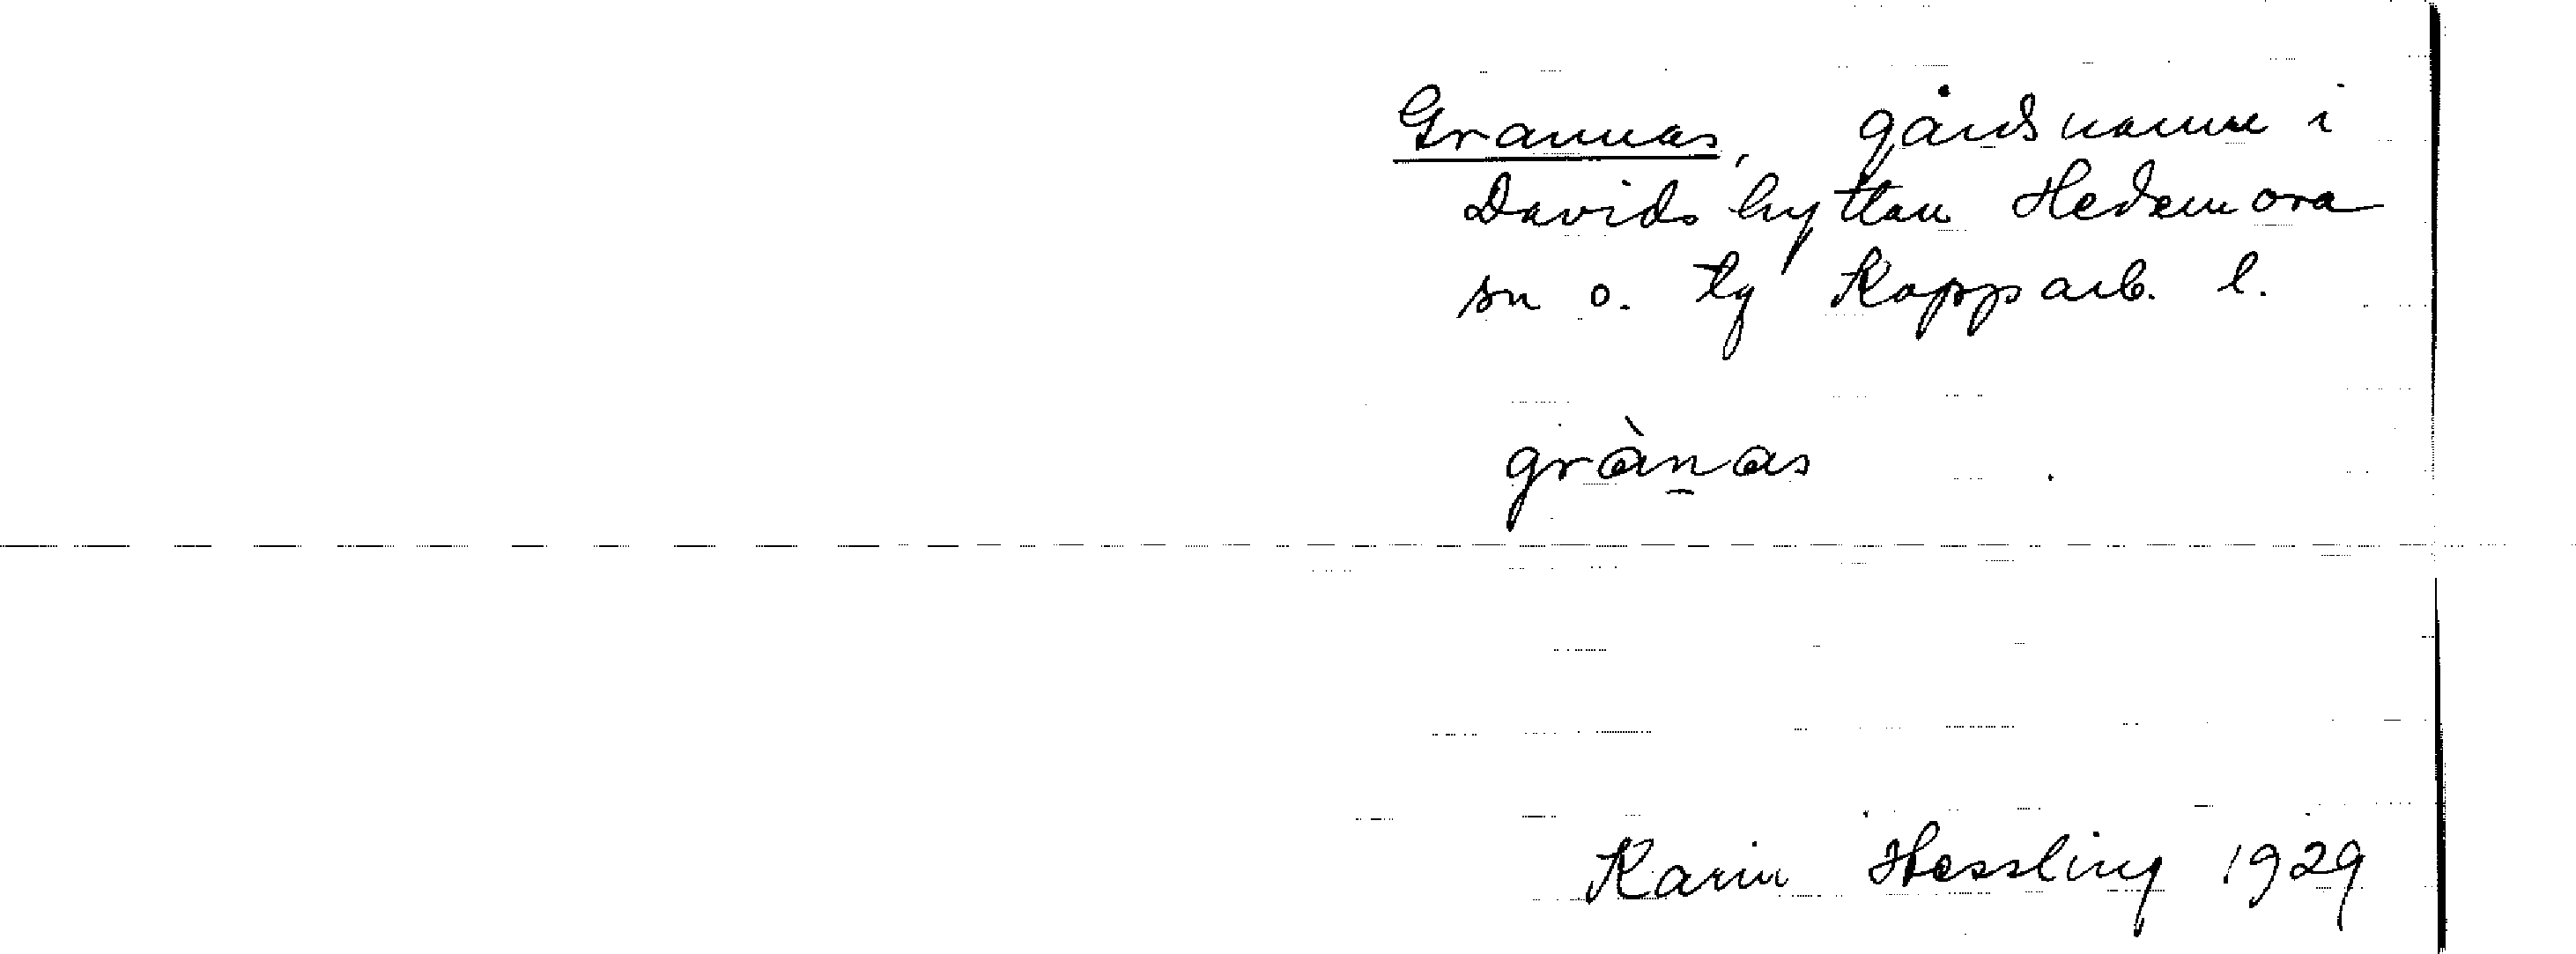 Grannas, gårdsnamn i
Davidshyttan Hedemora
sn o. tg Kopparb. l.
gràn̲as
Karin Hessling 1929